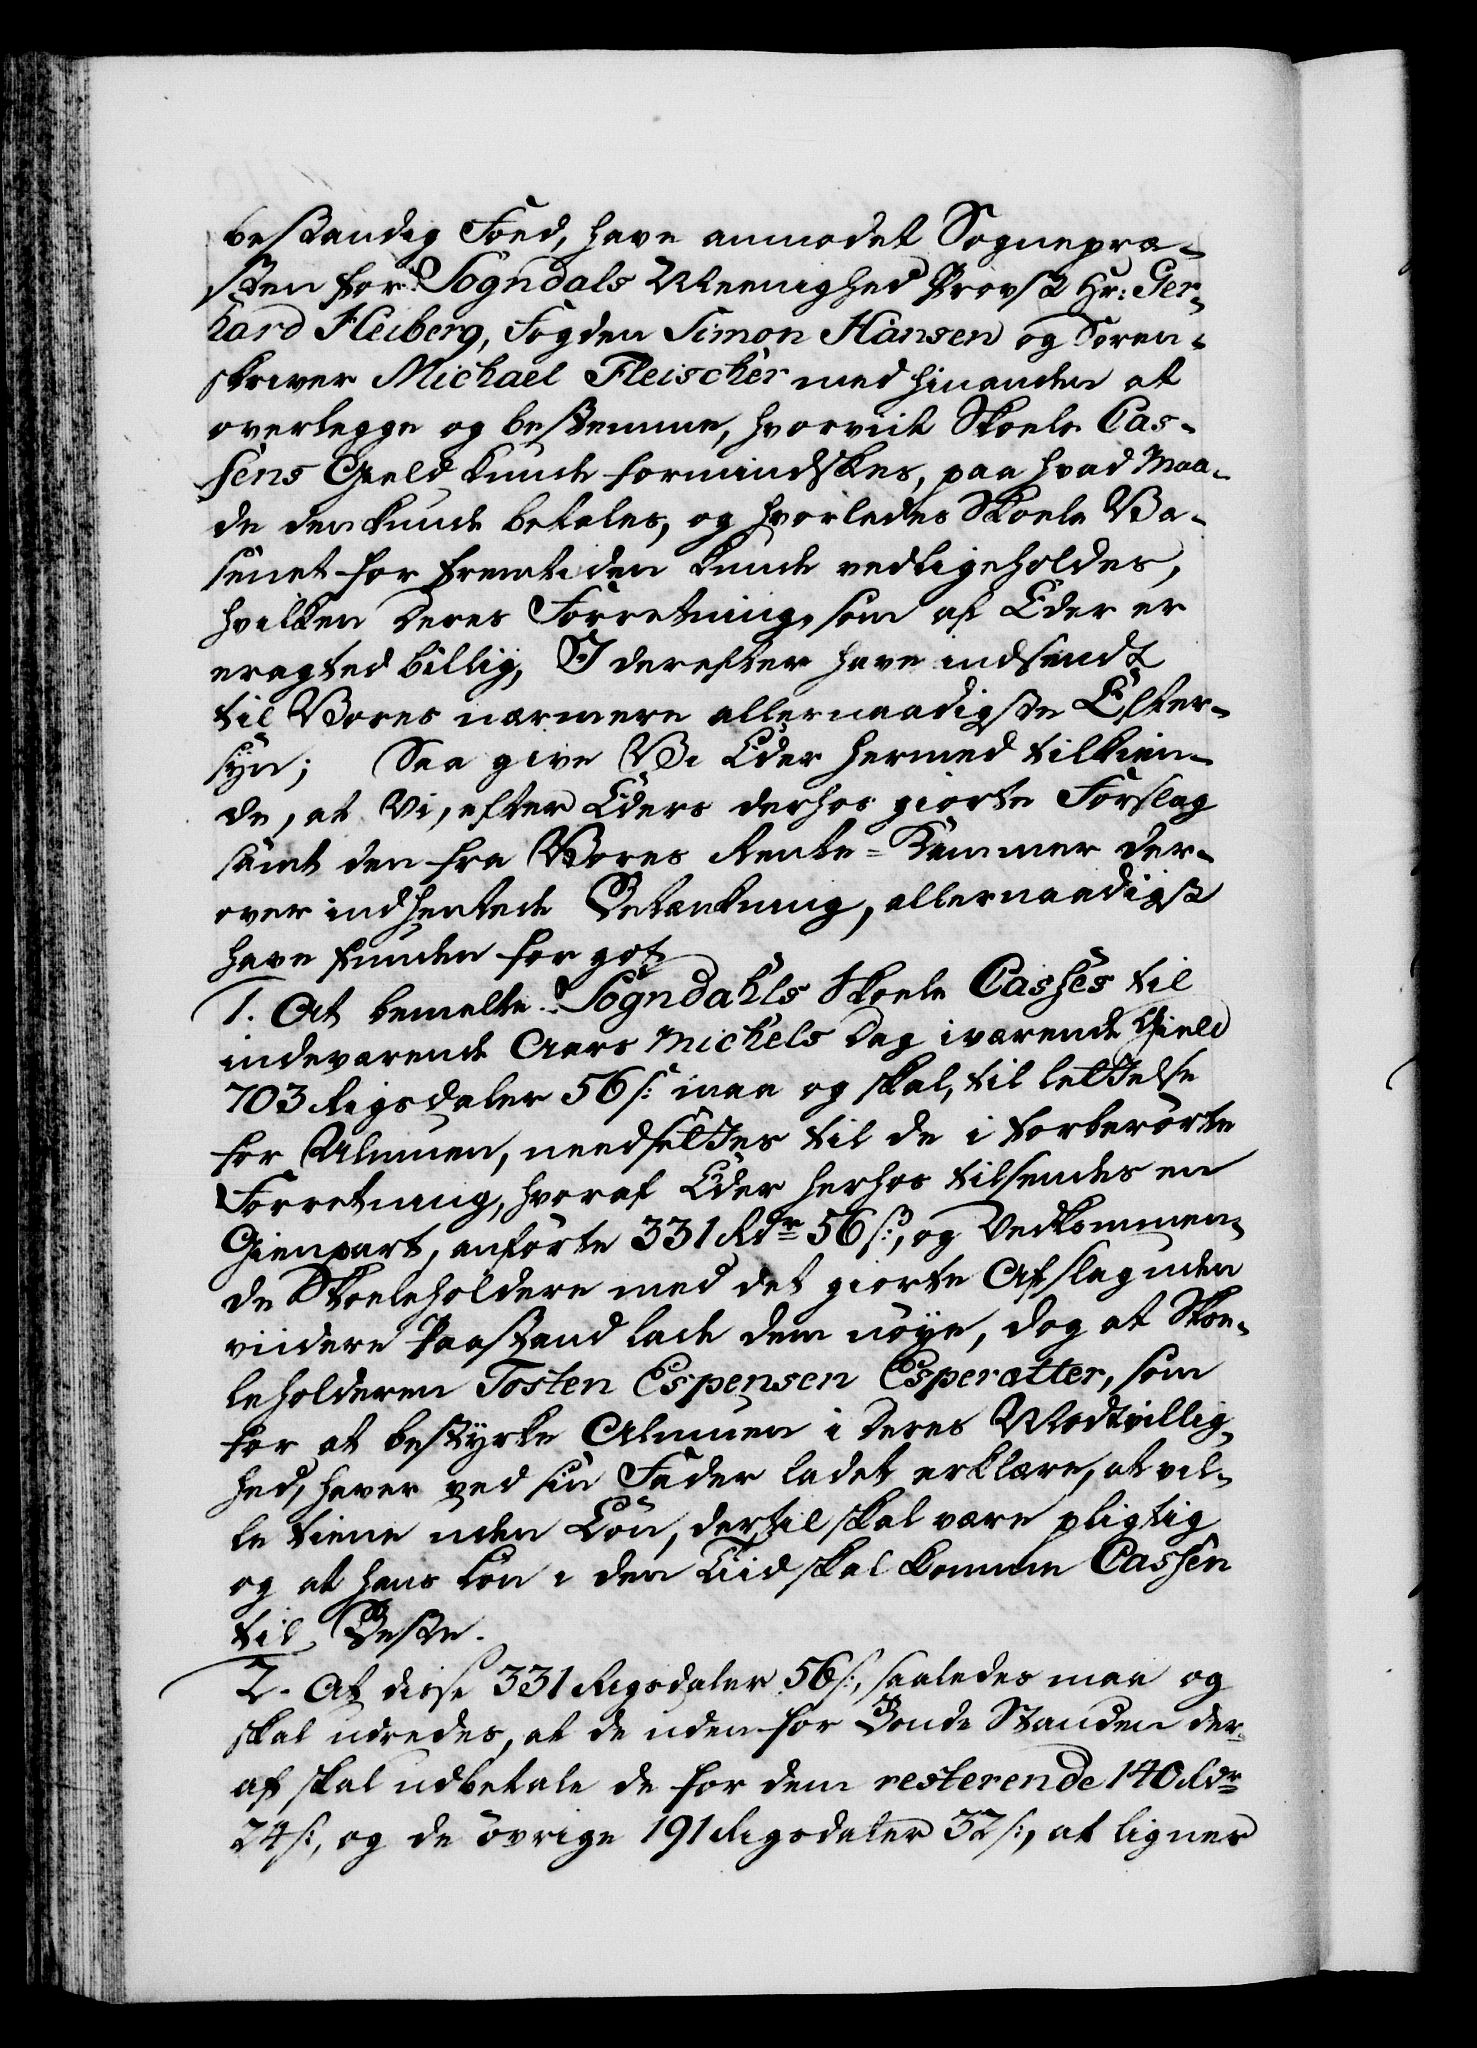 bestandig Foed, have anmodet Sognepræ-
sten for Sogndals Meenighed Provst Hr: Ger-
hard Heiberg, Fogden Simon Hansen og Soren-
skriver Michael Fleischer med hinanden at
overlegge og bestemme, hvorvidt Skoele Cas-
sens Gield kunde formindskes, paa hvad Maa-
de den kunde betales, og hvorledes Skoele Væ-
senet for fremtiden kunde vedligeholdes,
hvilken deres Forretning, som af Eder er
eragted billig, I derefter have indsendt
til Vores nærmere allernaadigste Efter-
syn; Saa give Vi Eder hermed tilkien-
de, at Vi, efter Eders derhos giorte Forslag
samt den fra Vores Rente-Kammer der-
over indhentede Betænkning, allernaadigst
have funden for got
1. At bemelte Sogndahls Skoele Casses til
indeværende Aars Michels Dag i værende Gield
703 Rigsdaler 56 s: maa og skal, til lettelse
for Almuen, needsettes til de i forberørte
Forretning, hvoraf Eder herhos tilsendes en
Gienpart, anførte 331 Rdr 56 s:, og Vedkommen-
de Skoeleholdere med det giorte Afslag uden
viidere Paastand lade dem nøye, dog at Skoe-
leholderen Tosten Espensen Esperætter, som
for at bestyrke Almuen i deres Modtvillig-
hed, haver ved sin Fader ladet erklære, at vil-
le tiene uden Løn, dertil skal være pligtig
og at hans Løn i den Tiid skal komme Cassen
til Beste.
2. At disse 331 Rigsdaler 56 s:, saaledes maa og
skal udredes, at de uden for Bonde Standen der-
af skal udbetale de for dem resterende 140 Rdr
24 s:, og de øvrige 191 Rigsdaler 32 s:, at lignes